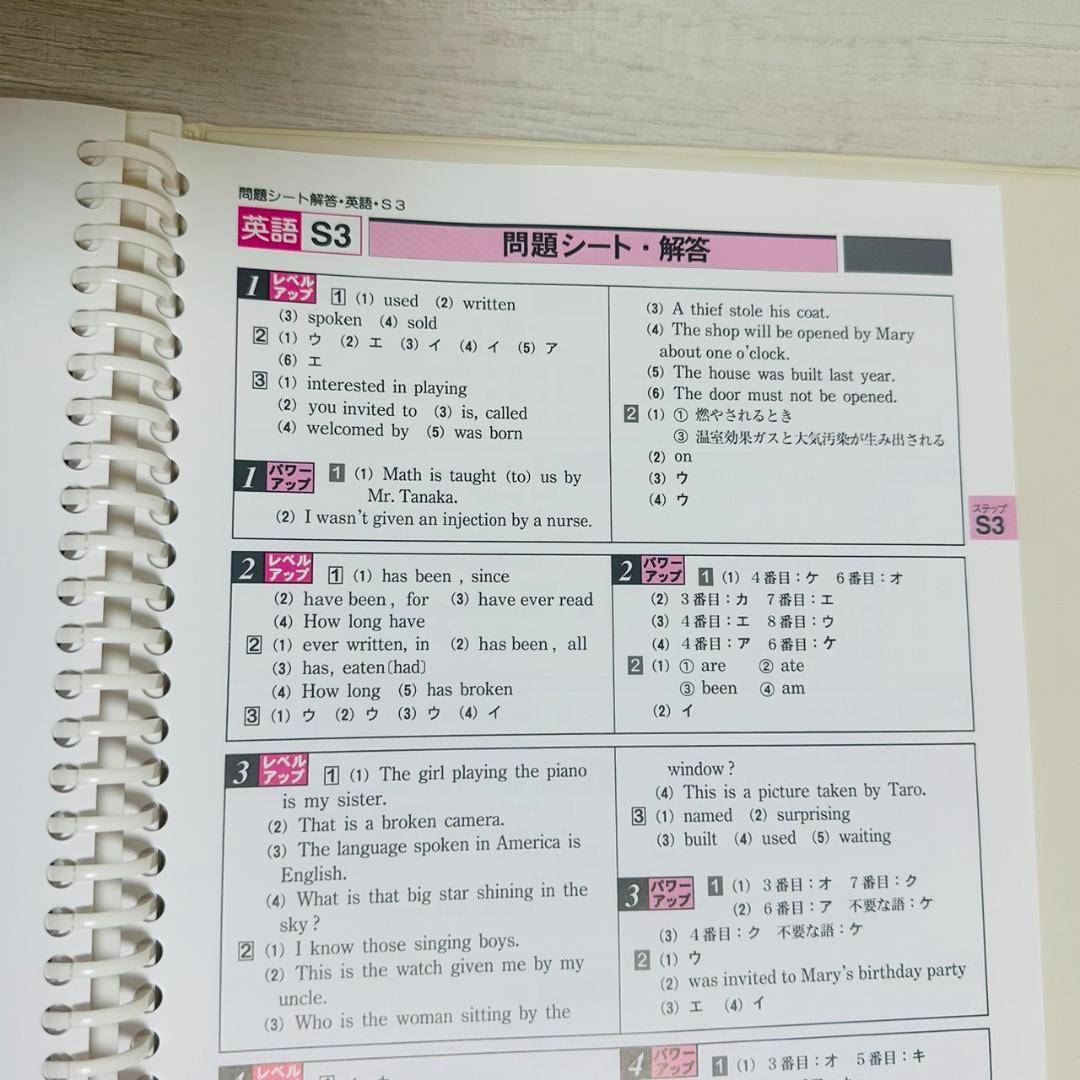 問題シート解答・英語・S3
英語 S3
問題シート・解答
1 レベルアップ 1 (1) used (2) written
(3) spoken (4) sold
2 (1) ウ (2) エ (3) イ (4) イ (5) ア
(6) エ
3 (1) interested in playing
(2) you invited to (3) is, called
(4) welcomed by (5) was born
1 パワーアップ 1 (1) Math is taught (to) us by
Mr. Tanaka.
(2) I wasn't given an injection by a nurse.
(3) A thief stole his coat.
(4) The shop will be opened by Mary
about one o'clock.
(5) The house was built last year.
(6) The door must not be opened.
2 (1) ① 燃やされるとき
③ 温室効果ガスと大気汚染が生み出される
(2) on
(3) ウ
(4) ウ
ステップ
S3
2 レベルアップ 1 (1) has been , since
(2) have been , for (3) have ever read
(4) How long have
2 (1) ever written, in (2) has been , all
(3) has, eaten〔had〕
(4) How long (5) has broken
3 (1) ウ (2) ウ (3) ウ (4) イ
2 パワーアップ 1 (1) 4番目:ケ 6番目:オ
(2) 3番目:カ 7番目:エ
(3) 4番目:エ 8番目:ウ
(4) 4番目:ア 6番目:ケ
2 (1) ① are ② ate
③ been ④ am
(2) イ
3 レベルアップ 1 (1) The girl playing the piano
is my sister.
(2) That is a broken camera.
(3) The language spoken in America is
English.
(4) What is that big star shining in the
sky?
2 (1) I know those singing boys.
(2) This is the watch given me by my
uncle.
(3) Who is the woman sitting by the
window?
(4) This is a picture taken by Taro.
3 (1) named (2) surprising
(3) built (4) used (5) waiting
3 パワーアップ 1 (1) 3番目:オ 7番目:ク
(2) 6番目:ア 不要な語:ケ
(3) 4番目:ク 不要な語:ケ
2 (1) ウ
(2) was invited to Mary's birthday party
(3) エ (4) イ
レベル
4 パワーアップ 1 (1) 3番目:オ 5番目:キ